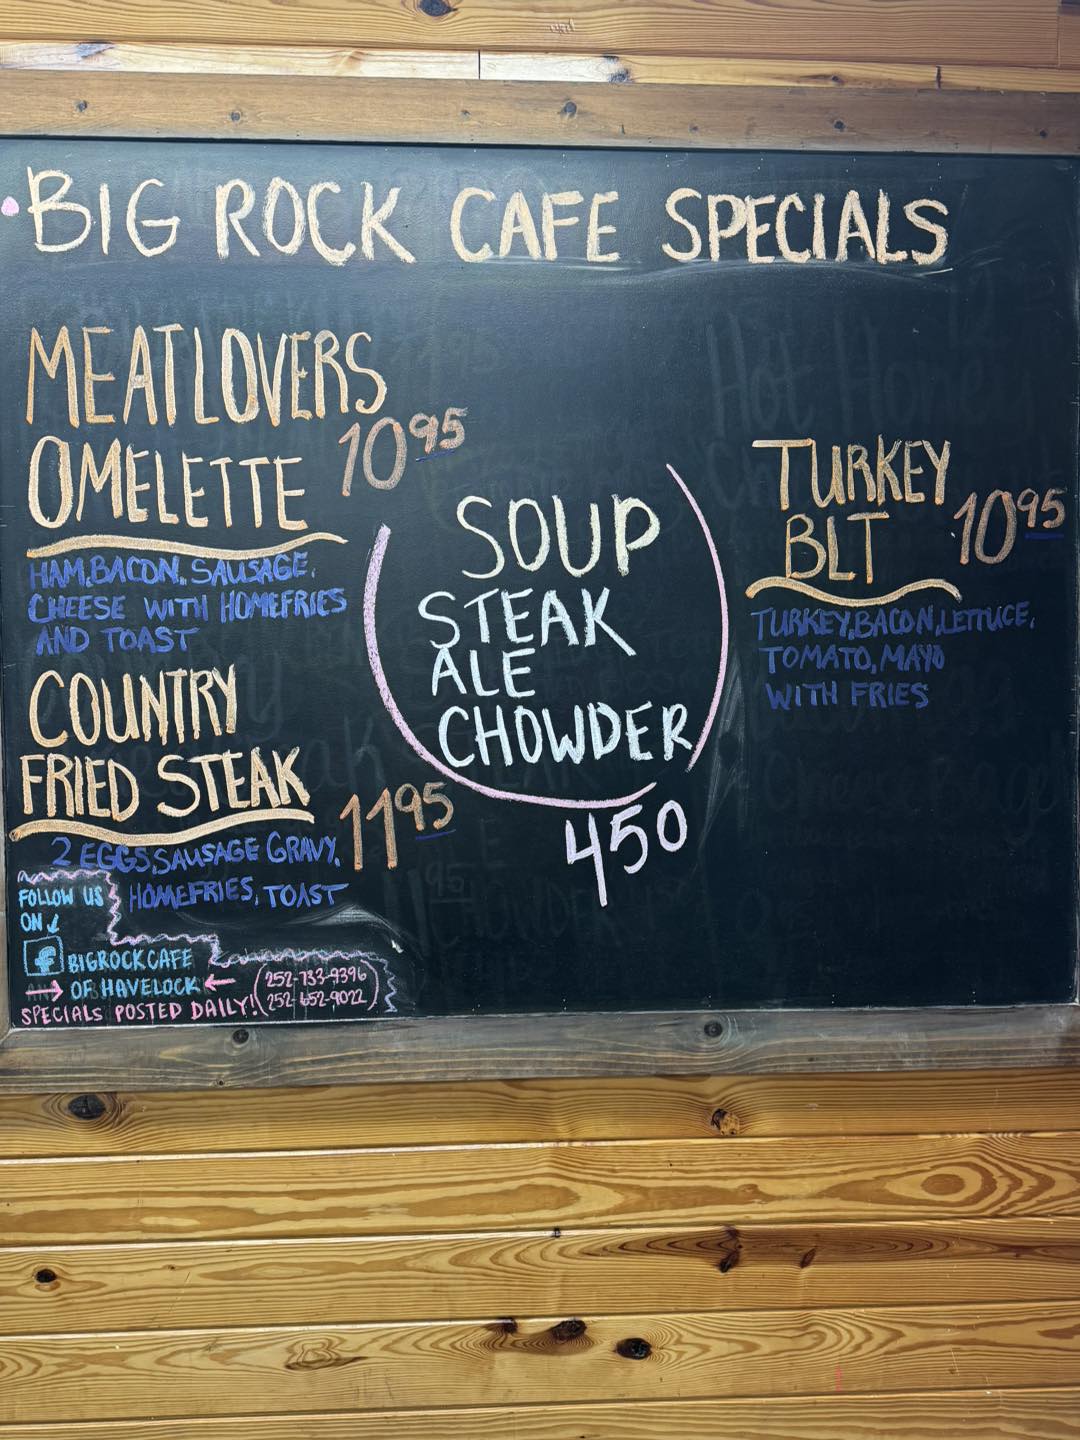 BIG ROCK CAFE SPECIALS
MEATLOVERS
OMELETTE 10 95
HAM, BACON, SAUSAGE,
CHEESE WITH HOMEFRIES
AND TOAST
COUNTRY
FRIED STEAK 11 95
2 EGGS, SAUSAGE GRAVY,
HOMEFRIES, TOAST
SOUP
STEAK
ALE
CHOWDER
450
TURKEY
BLT 10 95
TURKEY, BACON, LETTUCE,
TOMATO, MAYO
WITH FRIES
FOLLOW US
ON
f BIGROCKCAFE
OF HAVELOCK
SPECIALS POSTED DAILY!
252-733-9396
252-652-9022